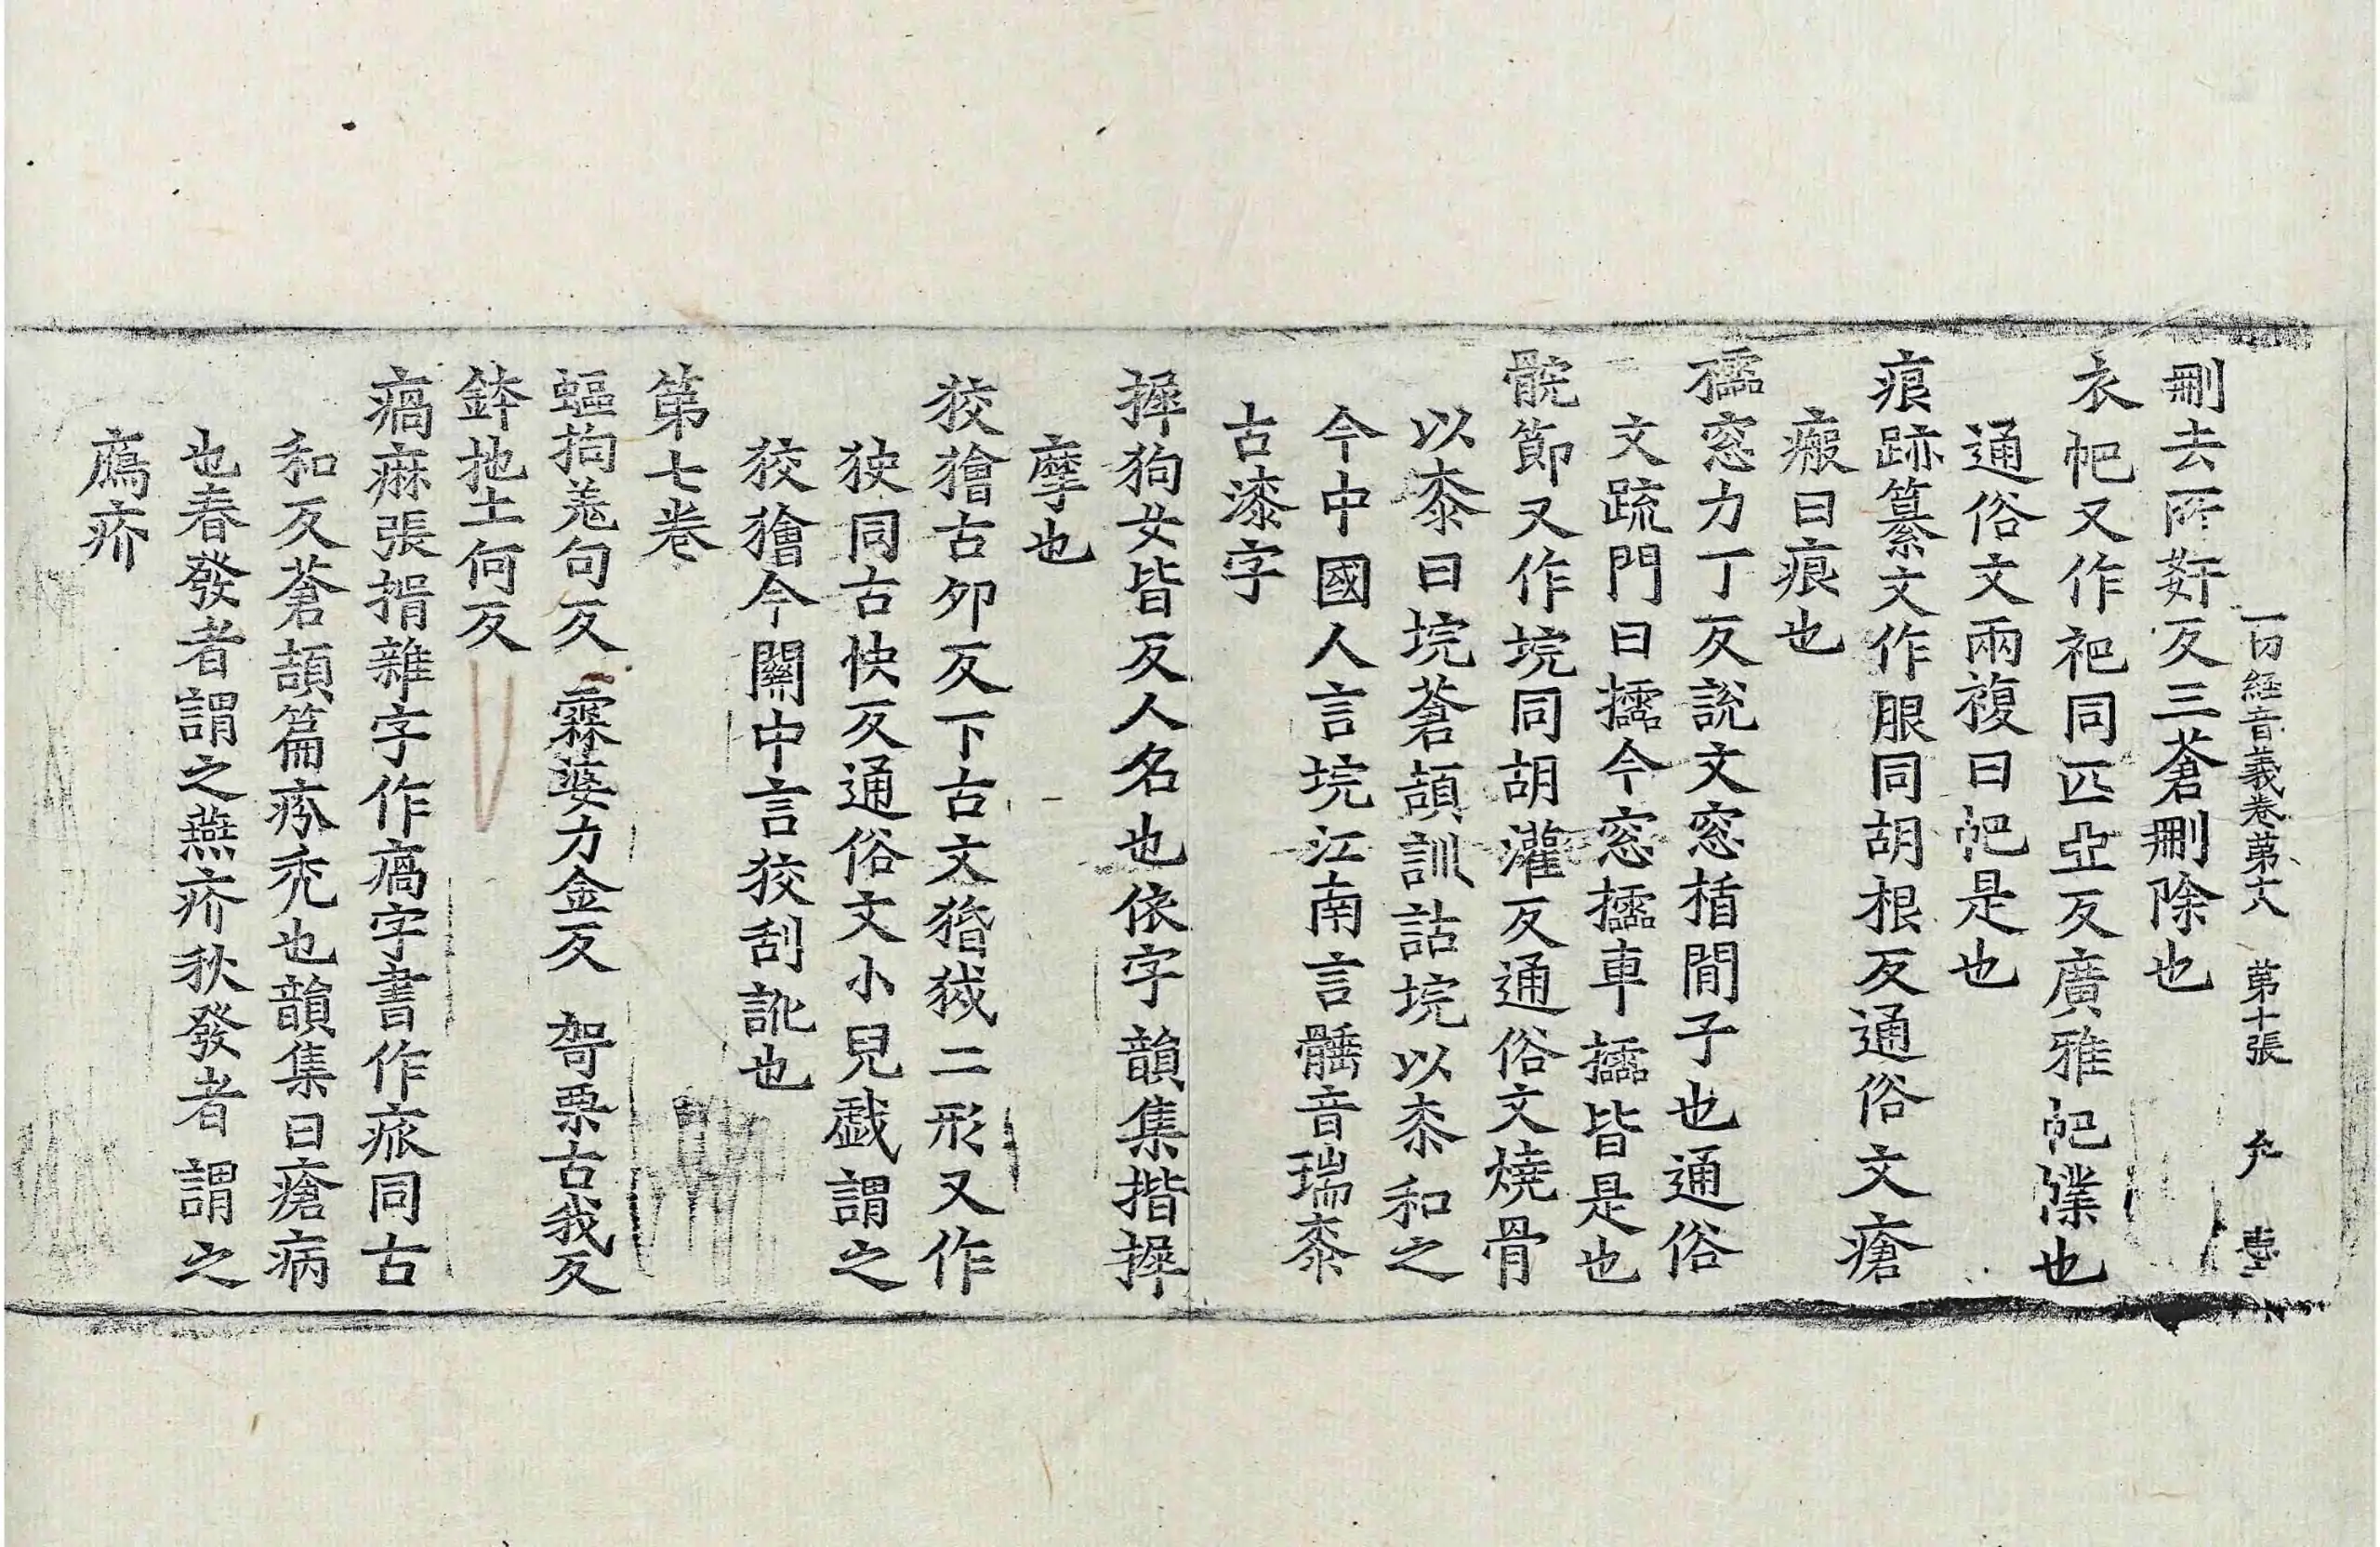 一切経音義卷第十八 第十張
刪去所姧反三蒼刪除也
衣帊又作袙同匹亞反廣雅帊幞也
通俗文兩複曰帊是也
痕跡纂文作䫀同胡根反通俗文瘡
瘢曰痕也
櫺窓力丁反說文窓楯間子也通俗
文疏門曰櫺今窓櫺車櫺皆是也
髖節又作垸同胡灌反通俗文燒骨
以桼曰垸蒼頡訓詁垸以桼和之
今中國人言垸江南言䭨音瑞桼
古漆字
揅狗女皆反人名也依字韻集揩揅
摩也
狡獪古夘反下古文猾狘二形又作
狭同古快反通俗文小兒戱謂之
狡獪今關中言狡刮訛也
苐七卷
蝹拘羗句反 霖婆力金反 哿栗古我反
鉢拖土何反
瘑痳張揖雜字作𤸎字書作𤵐同古
和反蒼頡篇疥禿也韻集曰瘡病
也春發者謂之燕疥秋發者謂之
鴈疥